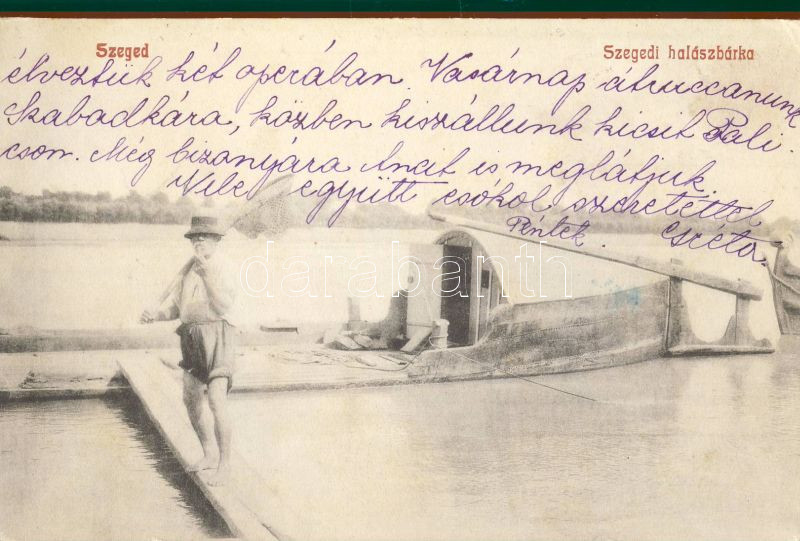 Szeged
Szegedi halászbárka
élveztük két operában. Vasárnap átruccanunk
Szabadkára, közben kiszállunk kicsit Pali.
cson. Még bizonyára is meglátjuk.
Vele együtt csókol szeretettel
Péntek.
darabanth